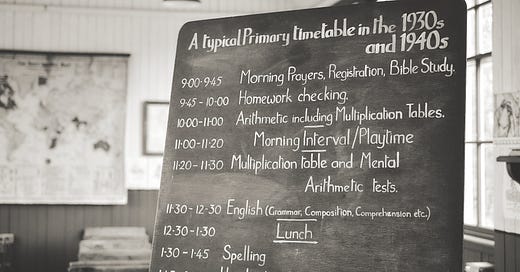 A typical Primary timetable in the 1930s
and 1940s
9:00-9:45 Morning Prayers, Registration, Bible Study.
9:45 - 10:00 Homework checking.
10:00-11:00 Arithmetic including Multiplication Tables.
11:00-11:20 Morning Interval/Playtime
11:20 - 11:30 Multiplication table and Mental
Arithmetic tests.
11:30 - 12:30 English (Grammar, Composition, Comprehension etc.)
12:30 - 1:30 Lunch
1:30 - 1:45 Spelling